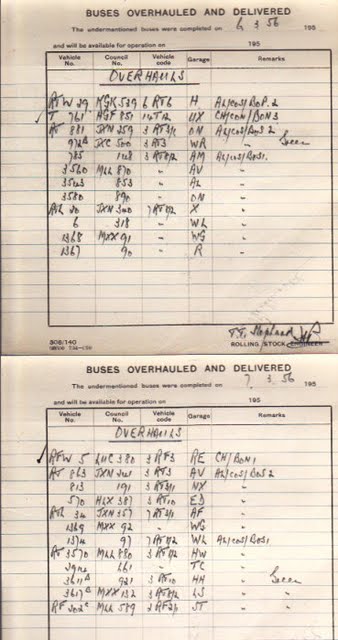 BUSES OVERHAULED AND DELIVERED
The undermentioned buses were completed on 6. 3. 56 195
and will be available for operation on 195
Vehicle No. Council No. Vehicle code Garage Remarks
OVERHAULS
RTW 29 KGK 529 6 RT6 H AL/COS/BOP. 2
T 761 HGF 851 14T12 UX CH/CON/BON3
RT 881 JXN 259 3 RT3/1 ON AL/COS/BOS 2
972 JXC 500 3 RT3 WR "
785 128 AM AL/COS/BOS1.
3560 MLL 870 " AV "
3543 853 " AL "
3580 890 " ON "
RTL 20 JXN 340 X "
6 318 " WL "
1368 MXX 91 " WG "
1367 90 " R "
308/140
ROLLING STOCK ENGINEER
BUSES OVERHAULED AND DELIVERED
The undermentioned buses were completed on 7. 3. 56 195
and will be available for operation on 195
Vehicle No. Council No. Vehicle code Garage Remarks
OVERHAULS
RFW 5 LUC 380 3 RF3 RE CH/BON1
RT 863 JXN 241 3 RT3 AV AL/COS/BOS 2
813 191 3 RT3/1 NX "
570 HLX 387 3 RT10 ED "
RTL 34 JXN 357 AF "
1369 MXX 92 " WG "
1374 97 WL AL/COS/BOS1
RT 3570 MLL 880 HW "
661 " TC "
921 3 RT10 HH "
MXX 132 LS "
RF 302 MLL 589 2 RF2/1 ST "